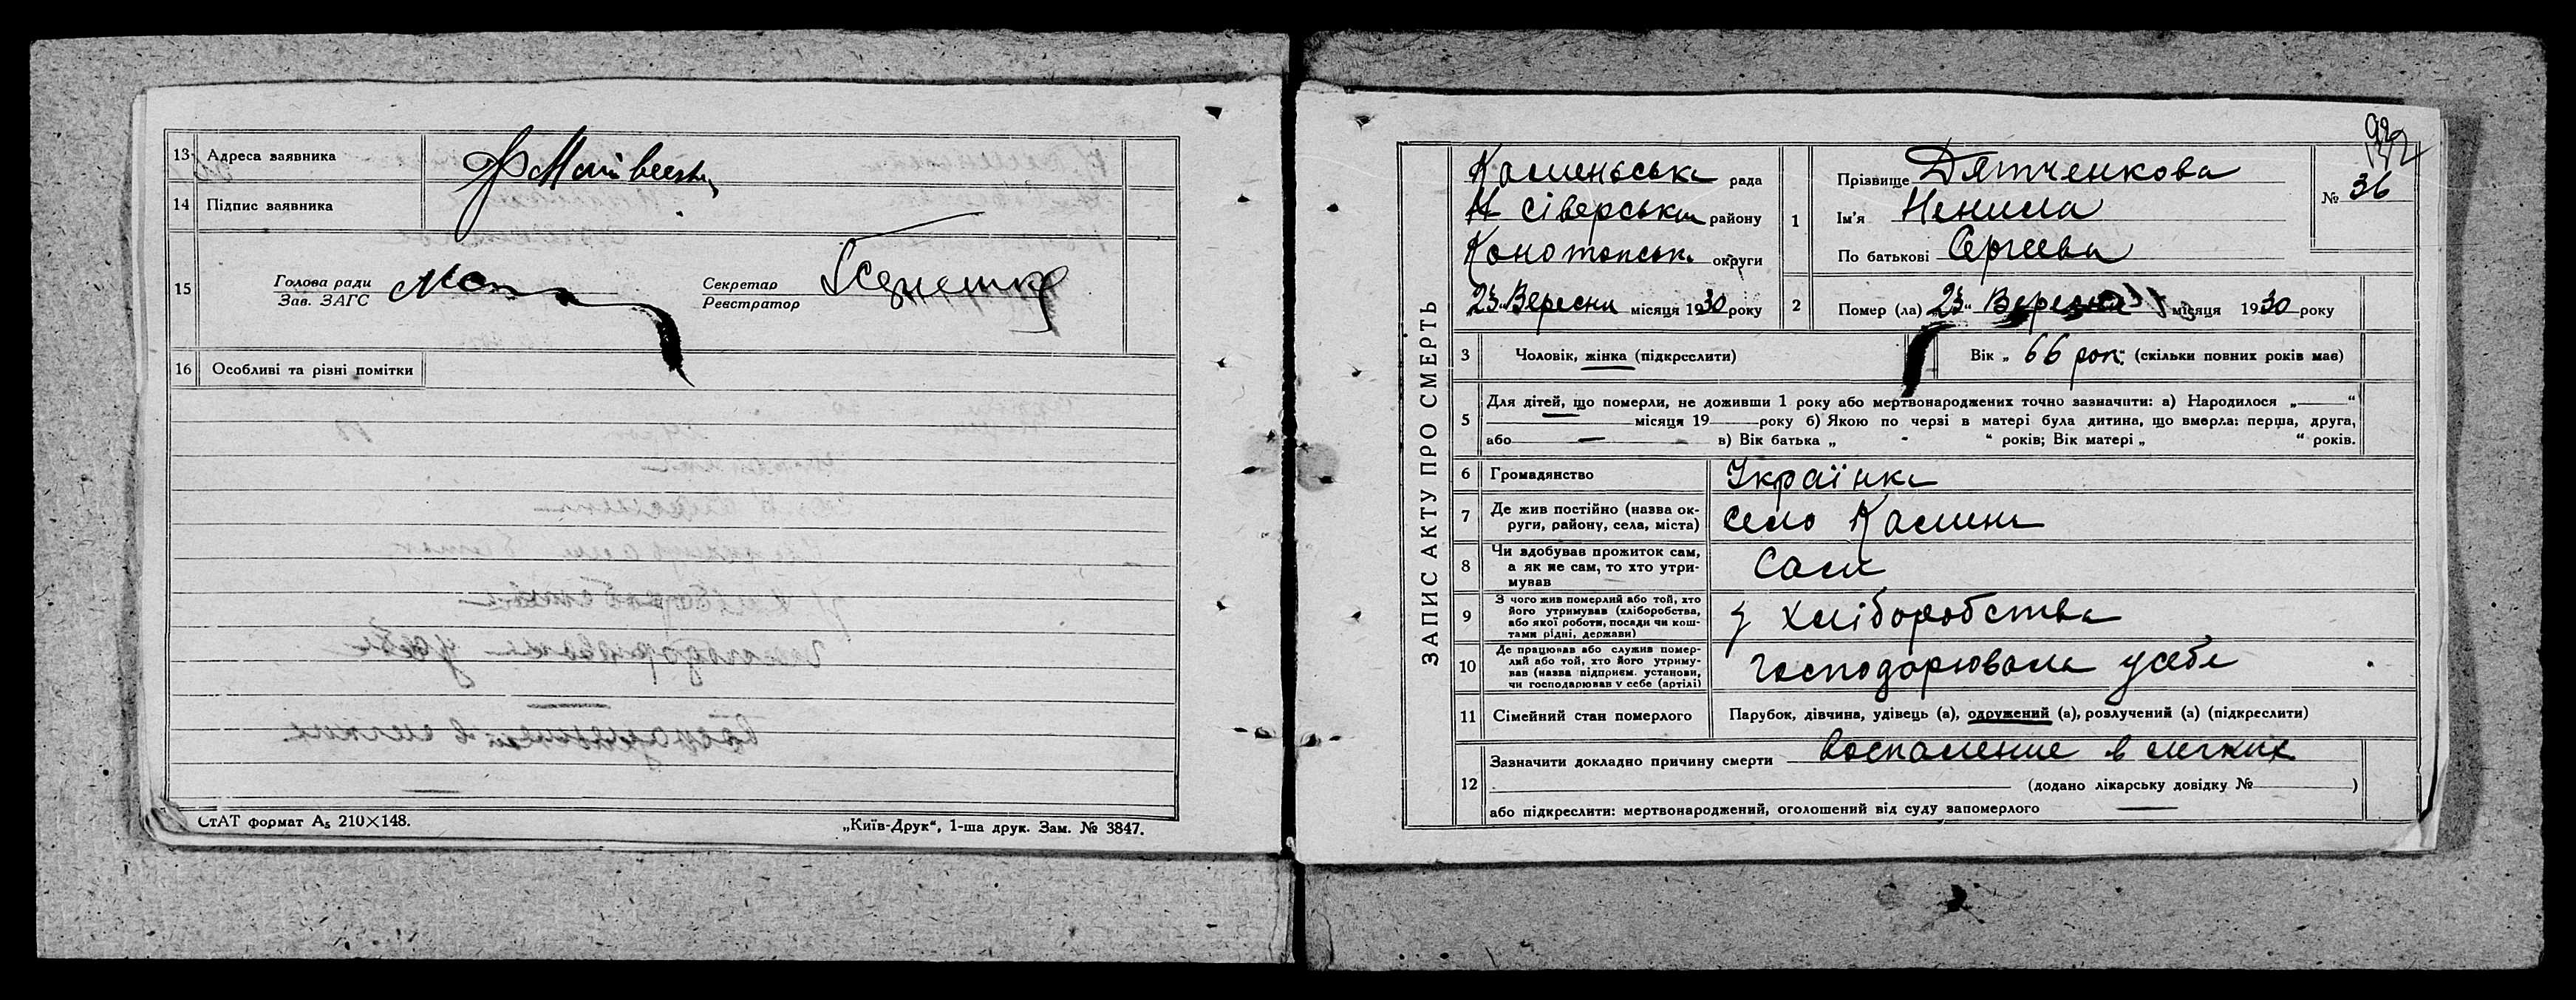 13 Адреса заявника
14 Підпис заявника
15 Голова ради Зав. ЗАГС Секретар Реєстратор
16 Особливі та різні помітки
СтАТ формат А₅ 210×148.
„Київ-Друк“, 1-ша друк. Зам. № 3847.
ЗАПИС АКТУ ПРО СМЕРТЬ
Каменьська рада
Н Сіверськ району
Конотопськ. округи
23 „ Вересня місяця 1930 року
1 Прізвище Дятченкова
Ім'я Ненила
По батькові Сергеева
№ 36
2 Помер (ла) „23“ Вересня місяця 1930 року
3 Чоловік, жінка (підкреслити) Вік „ 66 рок. “ (скільки повних років мав)
5 Для дітей, що померли, не доживши 1 року або мертвонароджених точно зазначити: а) Народилося „ “
місяця 19 року б) Якою по черзі в матері була дитина, що вмерла: перша, друга,
або в) Вік батька „ “ років; Вік матері „ “ років.
6 Громадянство Українка
7 Де жив постійно (назва ок-
руги, району, села, міста) село Камень
8 Чи здобував прожиток сам,
а як не сам, то хто утри-
мував Сама
9 З чого жив померлий або той, хто
його утримував (хліборобства,
або якої роботи, посади чи кош-
тами рідні, держави) з хліборобства
10 Де працював або служив помер-
лий або той, хто його утриму-
вав (назва підприєм. установи,
чи господарював у себе (артілі) господорювала усебе
11 Сімейний стан померлого Парубок, дівчина, удівець (а), одружений (а), розлучений (а) (підкреслити)
12 Зазначити докладно причину смерти воспаление в легких
(додано лікарську довідку № )
або підкреслити: мертвонароджений, оголошений від суду запомерлого